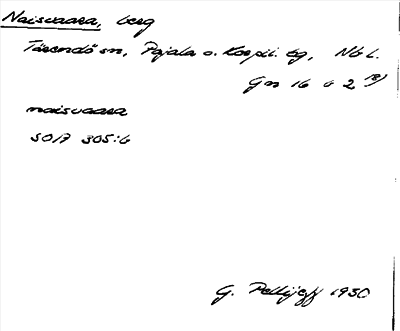 Naisvaara, berg
Tärendö sn, Pajala o. Korpil. tg, Nb l.
Gn 16 a 2
naisvaara
SOI7 305:6
G. Pellijeff 1930